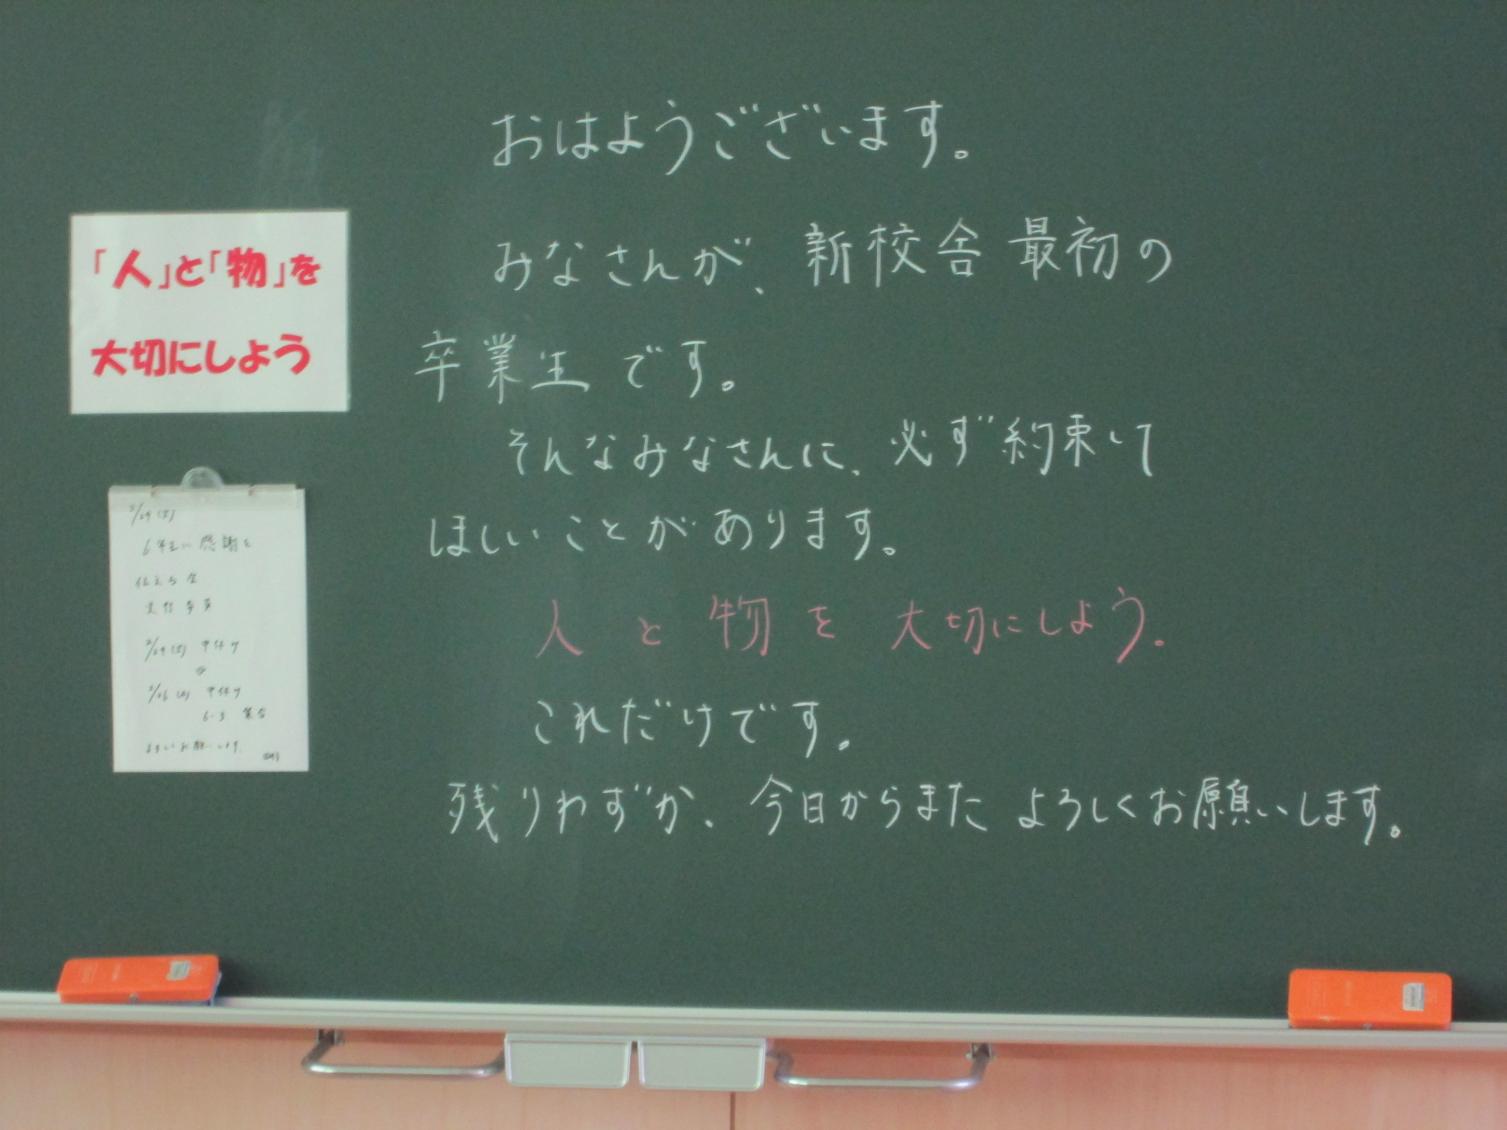 おはようございます。
みなさんが、新校舎最初の
卒業生です。
そんなみなさんに、必ず約束して
ほしいことがあります。
人と物を大切にしよう。
これだけです。
残りわずか、今日からまたよろしくお願いします。
「人」と「物」を
大切にしよう
6年生に感謝を
伝える会
実行委員
中休み
中休み
6-3 集合
よろしくお願いします。